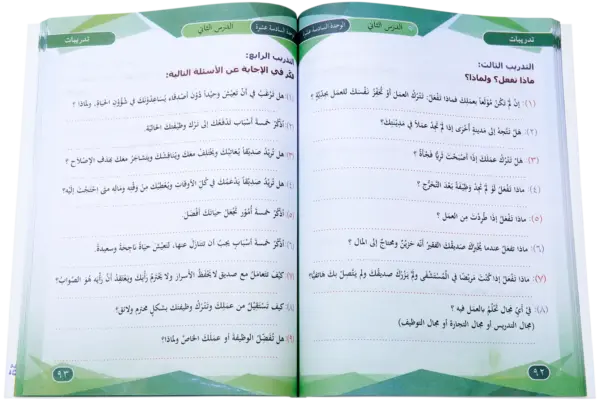 تدريبات
الدرس الثاني
الوحدة السادسة عشرة
التدريب الثالث:
ماذا تفعل؟ ولماذا؟
(١) إِنْ لَمْ تَكُنْ مُولَعاً بِعملِكَ فَماذا تَفْعَلُ: تَتْرُكُ العملَ أو تُحَفِّزُ نَفْسَكَ لِلعملِ بِجِدِّيَّةٍ ؟
(٢) هَلْ تَتَّجِهُ إلى مدينةٍ أُخْرَى إذا لَمْ تَجِدْ عملاً في مَدِينَتِكَ؟
(٣) هَلْ تَتْرُكُ عملَكَ إذا أَصْبَحْتَ ثَرِيًّا فَجْأَةً ؟
(٤) ماذا تَفْعَلُ لَوْ لَمْ تَجِدْ وَظِيفَةً بَعْدَ التَّخَرُّجِ ؟
(٥) ماذا تَفْعَلُ إذا طُرِدْتَ مِن العملِ ؟
(٦) ماذا تفعلُ عندما يُخْبِرُكَ صَدِيقُكَ الفقيرُ أنَّه حَزِينٌ ومحتاجٌ إلى المال ؟
(٧) ماذا تَفْعَلُ إذا كُنْتَ مَرِيضًا في المُسْتَشْفَى ولَمْ يَزُرْكَ صَدِيقُكَ ولم يتَّصِلْ بِكَ هَاتِفِيًّا؟
(٨) في أيِّ مجالٍ تَحْلُمُ بالعملِ فيه ؟
(مجال التدريس أو مجال التجارة أو مجال التوظيف)
٩٢
الوحدة السادسة عشرة
الدرس الثاني
تدريبات
التدريب الرابع:
فكّر في الإجابة عن الأسئلة التالية:
(١) هل تَرْغَبُ في أَنْ تَعِيشَ وَحِيداً دُوْنَ أَصْدقَاء يُسَاعِدُوْنَكَ في شُؤُوْنِ الحَيَاةِ. ولماذا ؟
(٢) اُذْكُرْ خمسةَ أَسْبَابٍ تَدْفَعُكَ إلى تَرْكِ وظيفتِكَ الحَالِيَّة.
(٣) هل تُرِيْدُ صَدِيْقاً يُعَاتِبُكَ ويَخْتَلِفُ معَكَ ويُنَاقِشُكَ ويَتَشَاجَرُ معَكَ بهدَفِ الإصْلَاحِ ؟
(٤) هل تُرِيْدُ صَدِيْقاً يَدْعَمُكَ في كُلِّ الأوقاتِ ويُعْطِيْكَ مِنْ وَقْتِهِ ومَالِهِ متى احْتَجْتَ إِلَيْهِ؟
(٥) اُذْكُرْ خمسةَ أُمُورٍ تَجْعَلُ حَيَاتَكَ أَفْضَلَ.
(٦) اُذْكُرْ خمسةَ أَسْبَابٍ يَجِبُ أن تَتَنَازَلَ عنها، لِتَعِيْشَ حَيَاةً نَاجِحَةً وسعيدةً.
(٧) كَيْفَ تَتَعَامَلُ مع صديقٍ لا يَحْفَظُ الأسْرَارَ ولا يَحْتَرِمُ رَأْيَكَ ويَعْتَقِدُ أنَّ رَأْيَه هُوَ الصَّوَابُ؟
(٨) كيف تَسْتَقِيْلُ من عملِكَ وتَتْرُكُ وظيفتَك بشكلٍ محترمٍ ولائقٍ؟
(٩) هل تُفَضِّلُ الوظيفةَ أو عملَكَ الخاصَّ ولماذا؟
٩٣